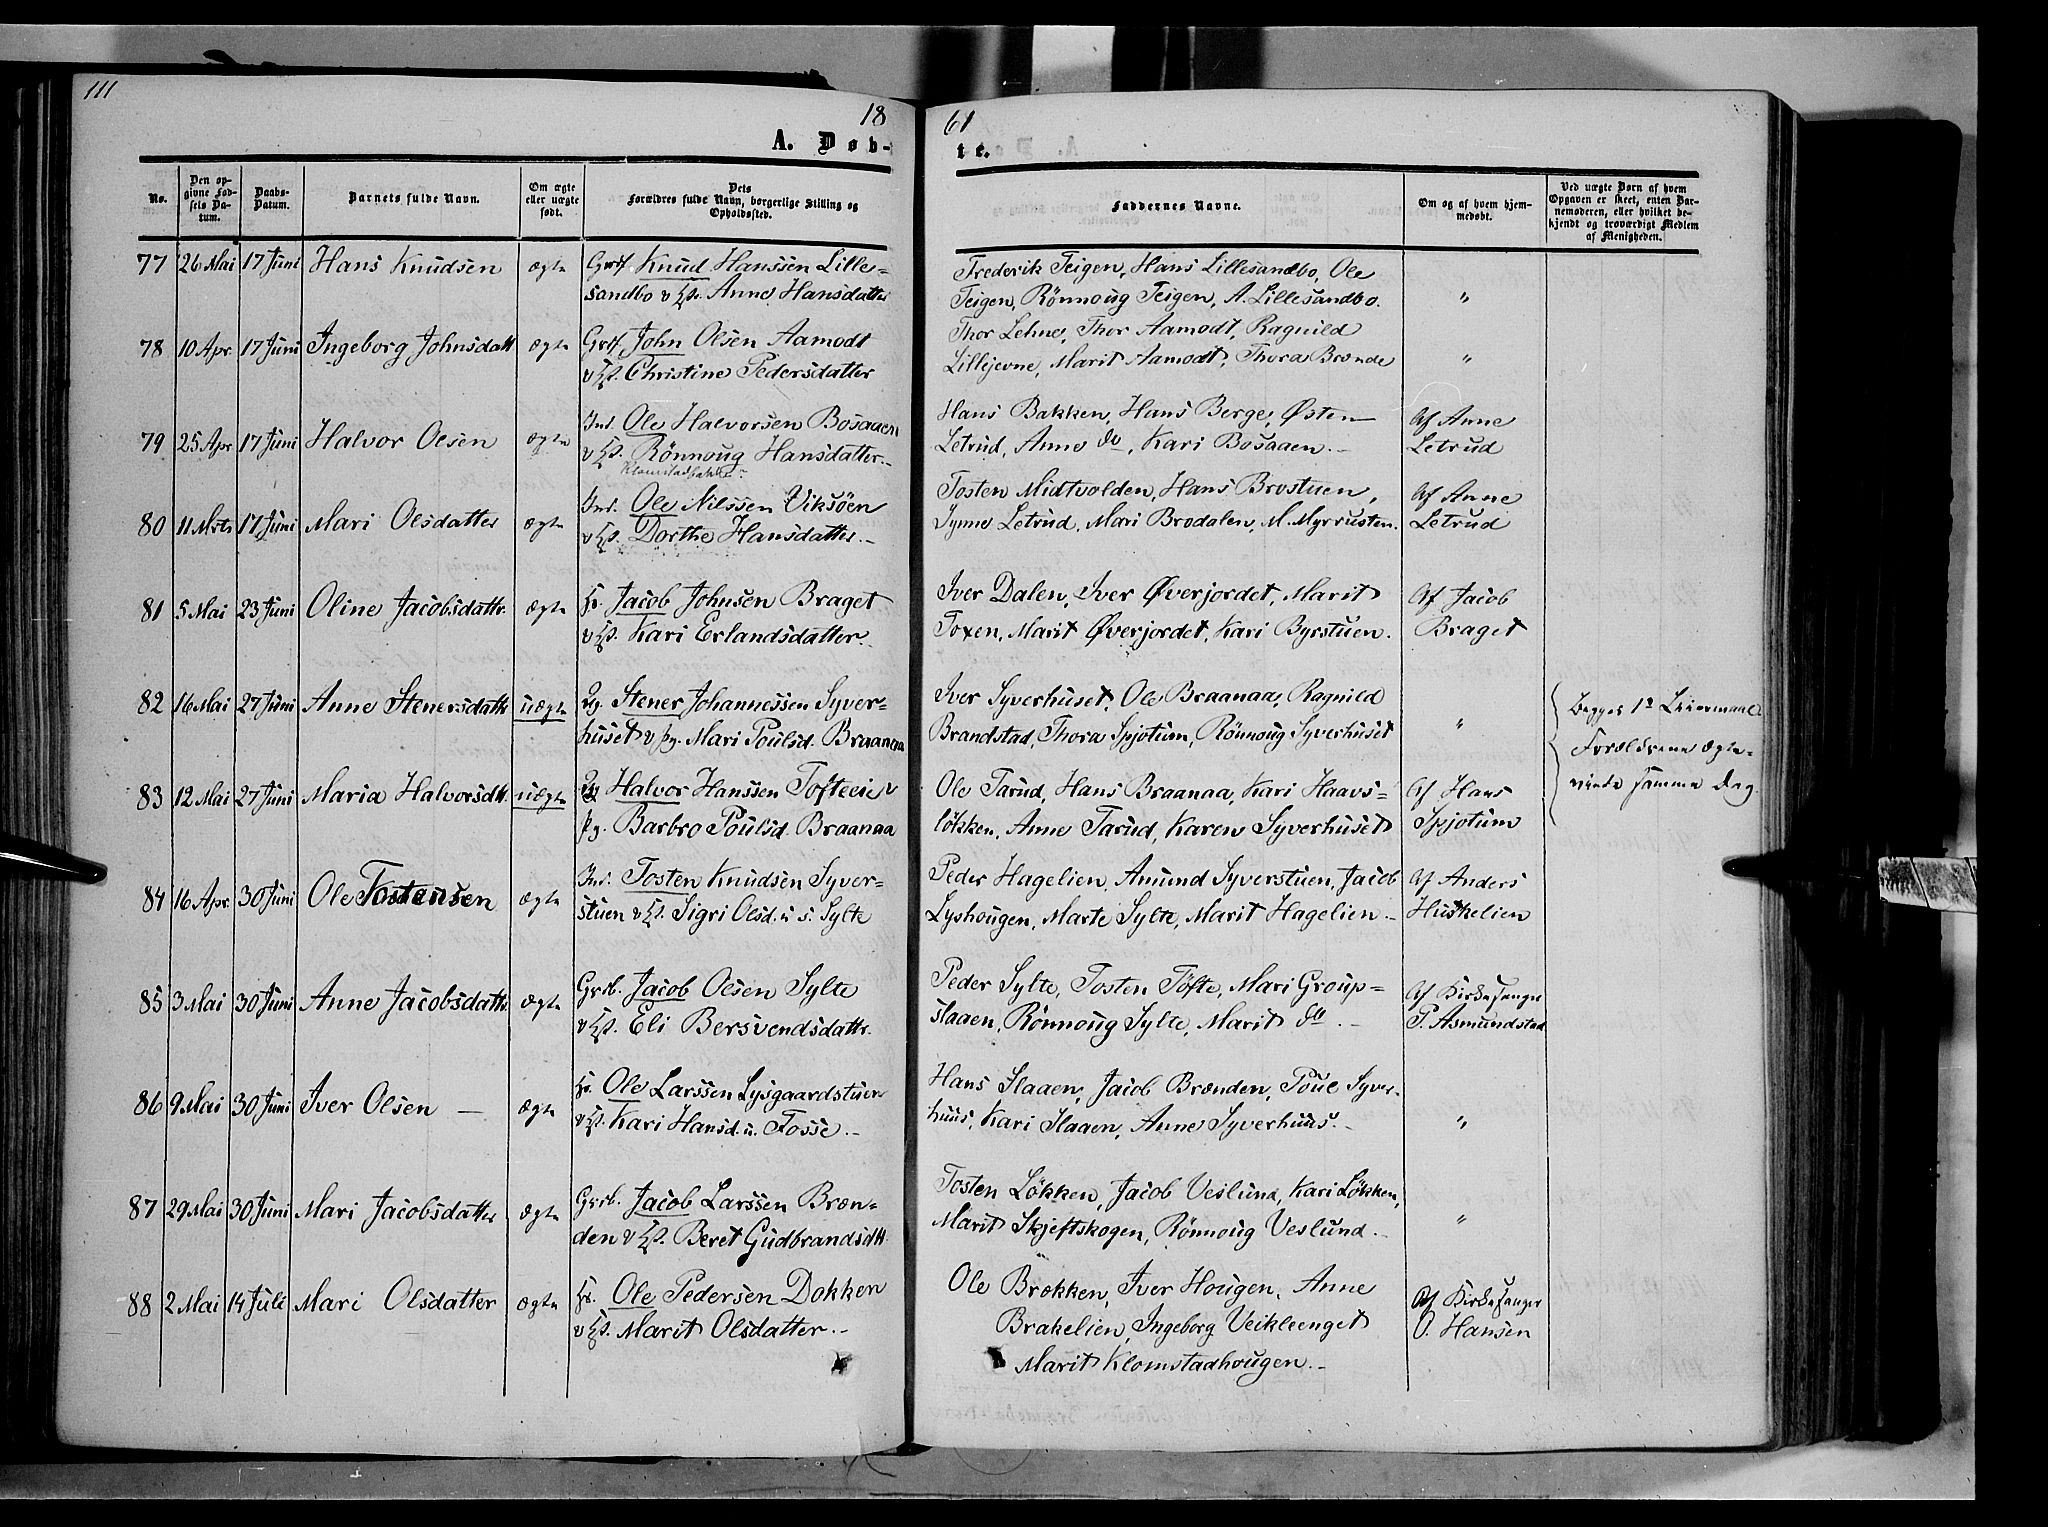 111
18 61
A. Døb- te.
No.
Den opgivne Fødsels Datum.
Daabs-Datum.
Barnets fulde Navn.
Om ægte eller uægte født.
Dets Forældres fulde Navn, borgerlige Stilling og Opholdssted.
Faddernes Navne.
Om og af hvem hjemmedøbt.
Ved uægte Børn af hvem Opgaven er skeet, enten Barnemoderen, eller hvilket bekjendt og troværdigt Medlem af Menigheden.
77 26 Mai 17 Juni Hans Knudsen ægte Knud Hanssen Lille= Frederik Teigen, Hans Lillesandbo, Ole
sandbo v Anne Hansdatter Teigen, Rönnoug Teigen, A. Lillesandbo. "
78 10 Apr. 17 Juni Ingeborg Johnsdatt ægte John Olsen Aamodt Thor Lehne, Thor Aamodt, Ragnild
v Christine Pedersdatter Lillejevne, Marit Aamodt, Thora Brænde "
79 25 Apr 17 Juni Halvor Olsen ægte Ind. Ole Halvorsen Bosaaen Hans Bakken, Hans Berge, Østen Af Anne
v Rönnoug Hansdatter.- Letrud, Anne do, Kari Bosaaen.- Letrud
Klomstadbakke
80 11 Mrts 17 Juni Mari Olsdatter ægte Ind. Ole Nilssen Viksöen Tosten Midtvolden, Hans Brostuen, Af Anne
v Dorthe Hansdatter.- Synne Letrud, Mari Brodalen, M. Myrrusten. Letrud
81 5 Mai 23 Juni Oline Jacobsdattr. ægte Jacob Johnsen Braget Iver Dalen, Iver Øverjordet, Marit Af Jacob
v Kari Erlandsdatter.- Toxen, Marit Øverjordet, Kari Byrstuen. Braget
82 16 Mai 27 Juni Anne Stenersdattr uægte Stener Johannessen Syver= Iver Syverhuset, Ole Braanaa, Ragnild Begges 1ste Leiermaal
huset v pg. Mari Poulsd. Braanaa Brandstad, Thora Spjotum, Rönnoug Syverhuset " Forældrene ægte-
83 12 Mai 27 Juni Maria Halvorsdtt. uægte Halvor Hanssen Tofteeie v Ole Tarud, Hans Braanaa, Kari Haavs= Af Hans viede samme Dag.
pg. Barbro Poulsd. Braanaa lökken, Anne Tarud, Karen Syverhuset Spjotum
84 16 Apr. 30 Juni Ole Tostensen ægte Ind. Tosten Knudsen Syver= Peder Hagelien, Amund Syverstuen, Jacob Af Anders
stuen v Sigri Olsd. u. s. Sylte Lyshougen, Marte Sylte, Marit Hagelien.- Huskelien
85 3 Mai 30 Juni Anne Jacobsdattr. ægte Grdb. Jacob Olsen Sylte Peder Sylte, Tosten Töfte, Mari Group= Af Kirkesanger
v Eli Bersvendsdattr. slaaen, Rönnoug Sylte, Marit do.- P. Asmundstad
86 9 Mai 30 Juni Iver Olsen - ægte Ole Larssen Lysgaardstuen Hans Slaaen, Jacob Brænden, Poul Syver-
v Kari Hansd. u. Fosse.- huus, Kari Slaaen, Anne Syverhuus.- "
87 29 Mai 30 Juni Mari Jacobsdatter ægte Grdb. Jacob Larssen Bræn= Tosten Lökken, Jacob Veslund, Kari Lökken,
den v Beret Gudbrandsdtt. Marit Skjeftskogen, Rönnoug Veslund.- "
88 2 Mai 14 Juli Mari Olsdatter ægte Ole Pedersen Dokken Ole Brækken, Iver Hougen, Anne Af Kirkesanger
v Marit Olsdatter.- Brakelien, Ingeborg Veikleenget O. Hansen
Marit Klomstadhougen.-